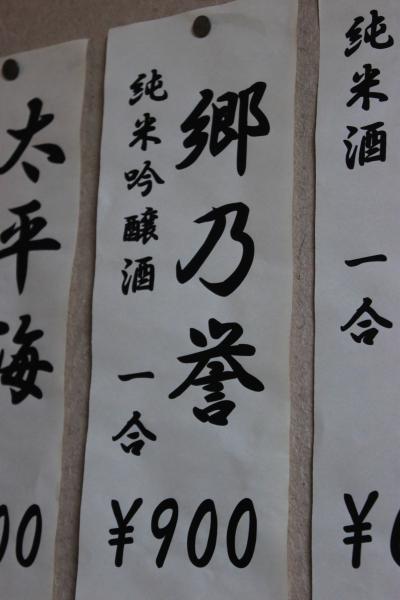 純米酒
一合
¥
郷乃誉
純米吟醸酒
一合
¥900
太平海
00